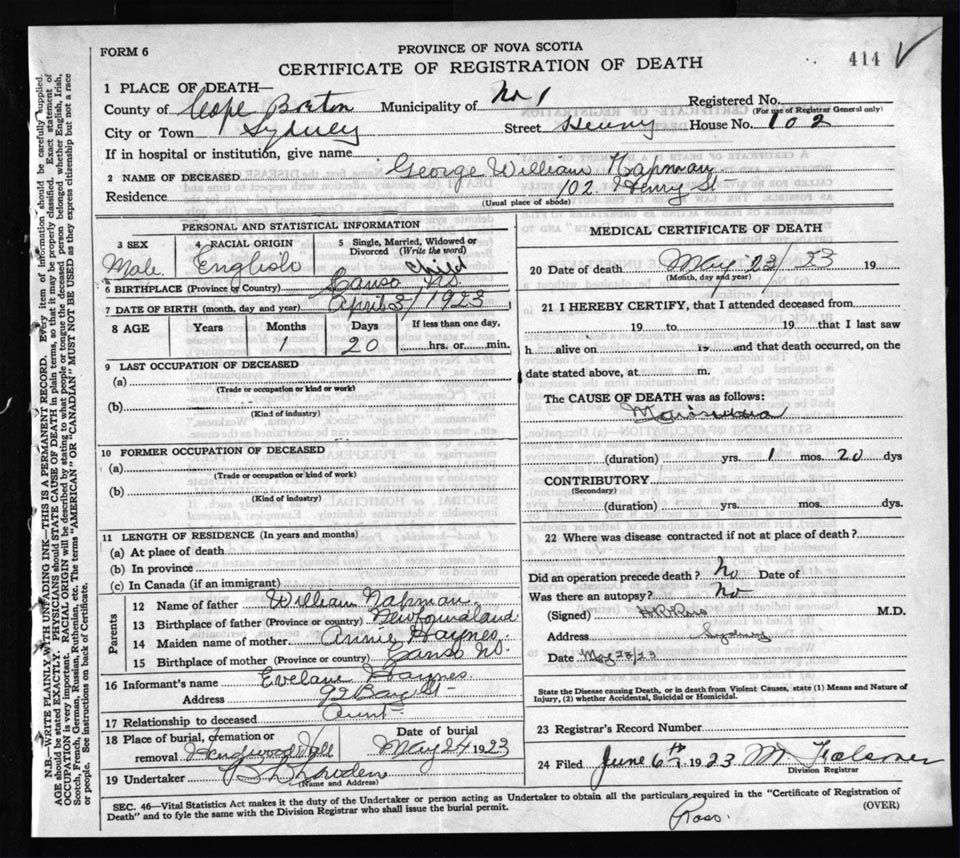 FORM 6
PROVINCE OF NOVA SCOTIA
414
CERTIFICATE OF REGISTRATION OF DEATH
1 PLACE OF DEATH—
County of Cape Breton Municipality of No 1 Registered No.
(For use of Registrar General only)
City or Town Sydney Street Henry House No. 102
If in hospital or institution, give name
2 NAME OF DECEASED George William Napman
Residence 102 Henry St
(Usual place of abode)
PERSONAL AND STATISTICAL INFORMATION
3 SEX 4 RACIAL ORIGIN 5 Single, Married, Widowed or Divorced (Write the word)
Male English Child
6 BIRTHPLACE (Province or Country) Canso NS
7 DATE OF BIRTH (month, day and year) April 3/1923
8 AGE Years Months Days If less than one day,
1 20 hrs. or min.
9 LAST OCCUPATION OF DECEASED
(a)
(Trade or occupation or kind or work)
(b)
(Kind of industry)
10 FORMER OCCUPATION OF DECEASED
(a)
(Trade or occupation or kind of work)
(b)
(Kind of industry)
11 LENGTH OF RESIDENCE (In years and months)
(a) At place of death
(b) In province
(c) In Canada (if an immigrant)
Parents
12 Name of father William Napman
13 Birthplace of father (Province or country) Newfoundland
14 Maiden name of mother Annie Haynes
15 Birthplace of mother (Province or country) Canso NS.
16 Informant's name Haynes
Address St
17 Relationship to deceased Aunt
18 Place of burial, cremation or removal Date of burial
May 24 1923
19 Undertaker
(Name and Address)
MEDICAL CERTIFICATE OF DEATH
20 Date of death May 23/23 19
(Month, day and year)
21 I HEREBY CERTIFY, that I attended deceased from
19 to 19 that I last saw
h alive on 19 and that death occurred, on the
date stated above, at m.
The CAUSE OF DEATH was as follows:
(duration) yrs. 1 mos. 20 dys
CONTRIBUTORY
(Secondary)
(duration) yrs. mos. dys.
22 Where was disease contracted if not at place of death?
Did an operation precede death? No Date of
Was there an autopsy? No
(Signed) M.D.
Address Sydney
Date May 23/23
State the Disease causing Death, or in death from Violent Causes, state (1) Means and Nature of Injury, (2) whether Accidental, Suicidal or Homicidal.
23 Registrar's Record Number
24 Filed June 6th 1923
Division Registrar
SEC. 46—Vital Statistics Act makes it the duty of the Undertaker or person acting as Undertaker to obtain all the particulars required in the "Certificate of Registration of
Death" and to fyle the same with the Division Registrar who shall issue the burial permit.
(OVER)
Ross.
N.B.—WRITE PLAINLY, WITH UNFADING INK—THIS IS A PERMANENT RECORD. Every item of information should be carefully supplied.
AGE should be stated EXACTLY. PHYSICIANS should STATE CAUSE OF DEATH in plain terms, so that it may be properly classified. Exact statement of
OCCUPATION is very important. RACIAL ORIGIN will be described by stating to what people or tongue the deceased person belonged whether English, Irish,
Scotch, French, German, Russian, Ruthenian, etc. The terms "AMERICAN" OR "CANADIAN" MUST NOT BE USED as they express citizenship but not a race
or people. See instructions on back of Certificate.